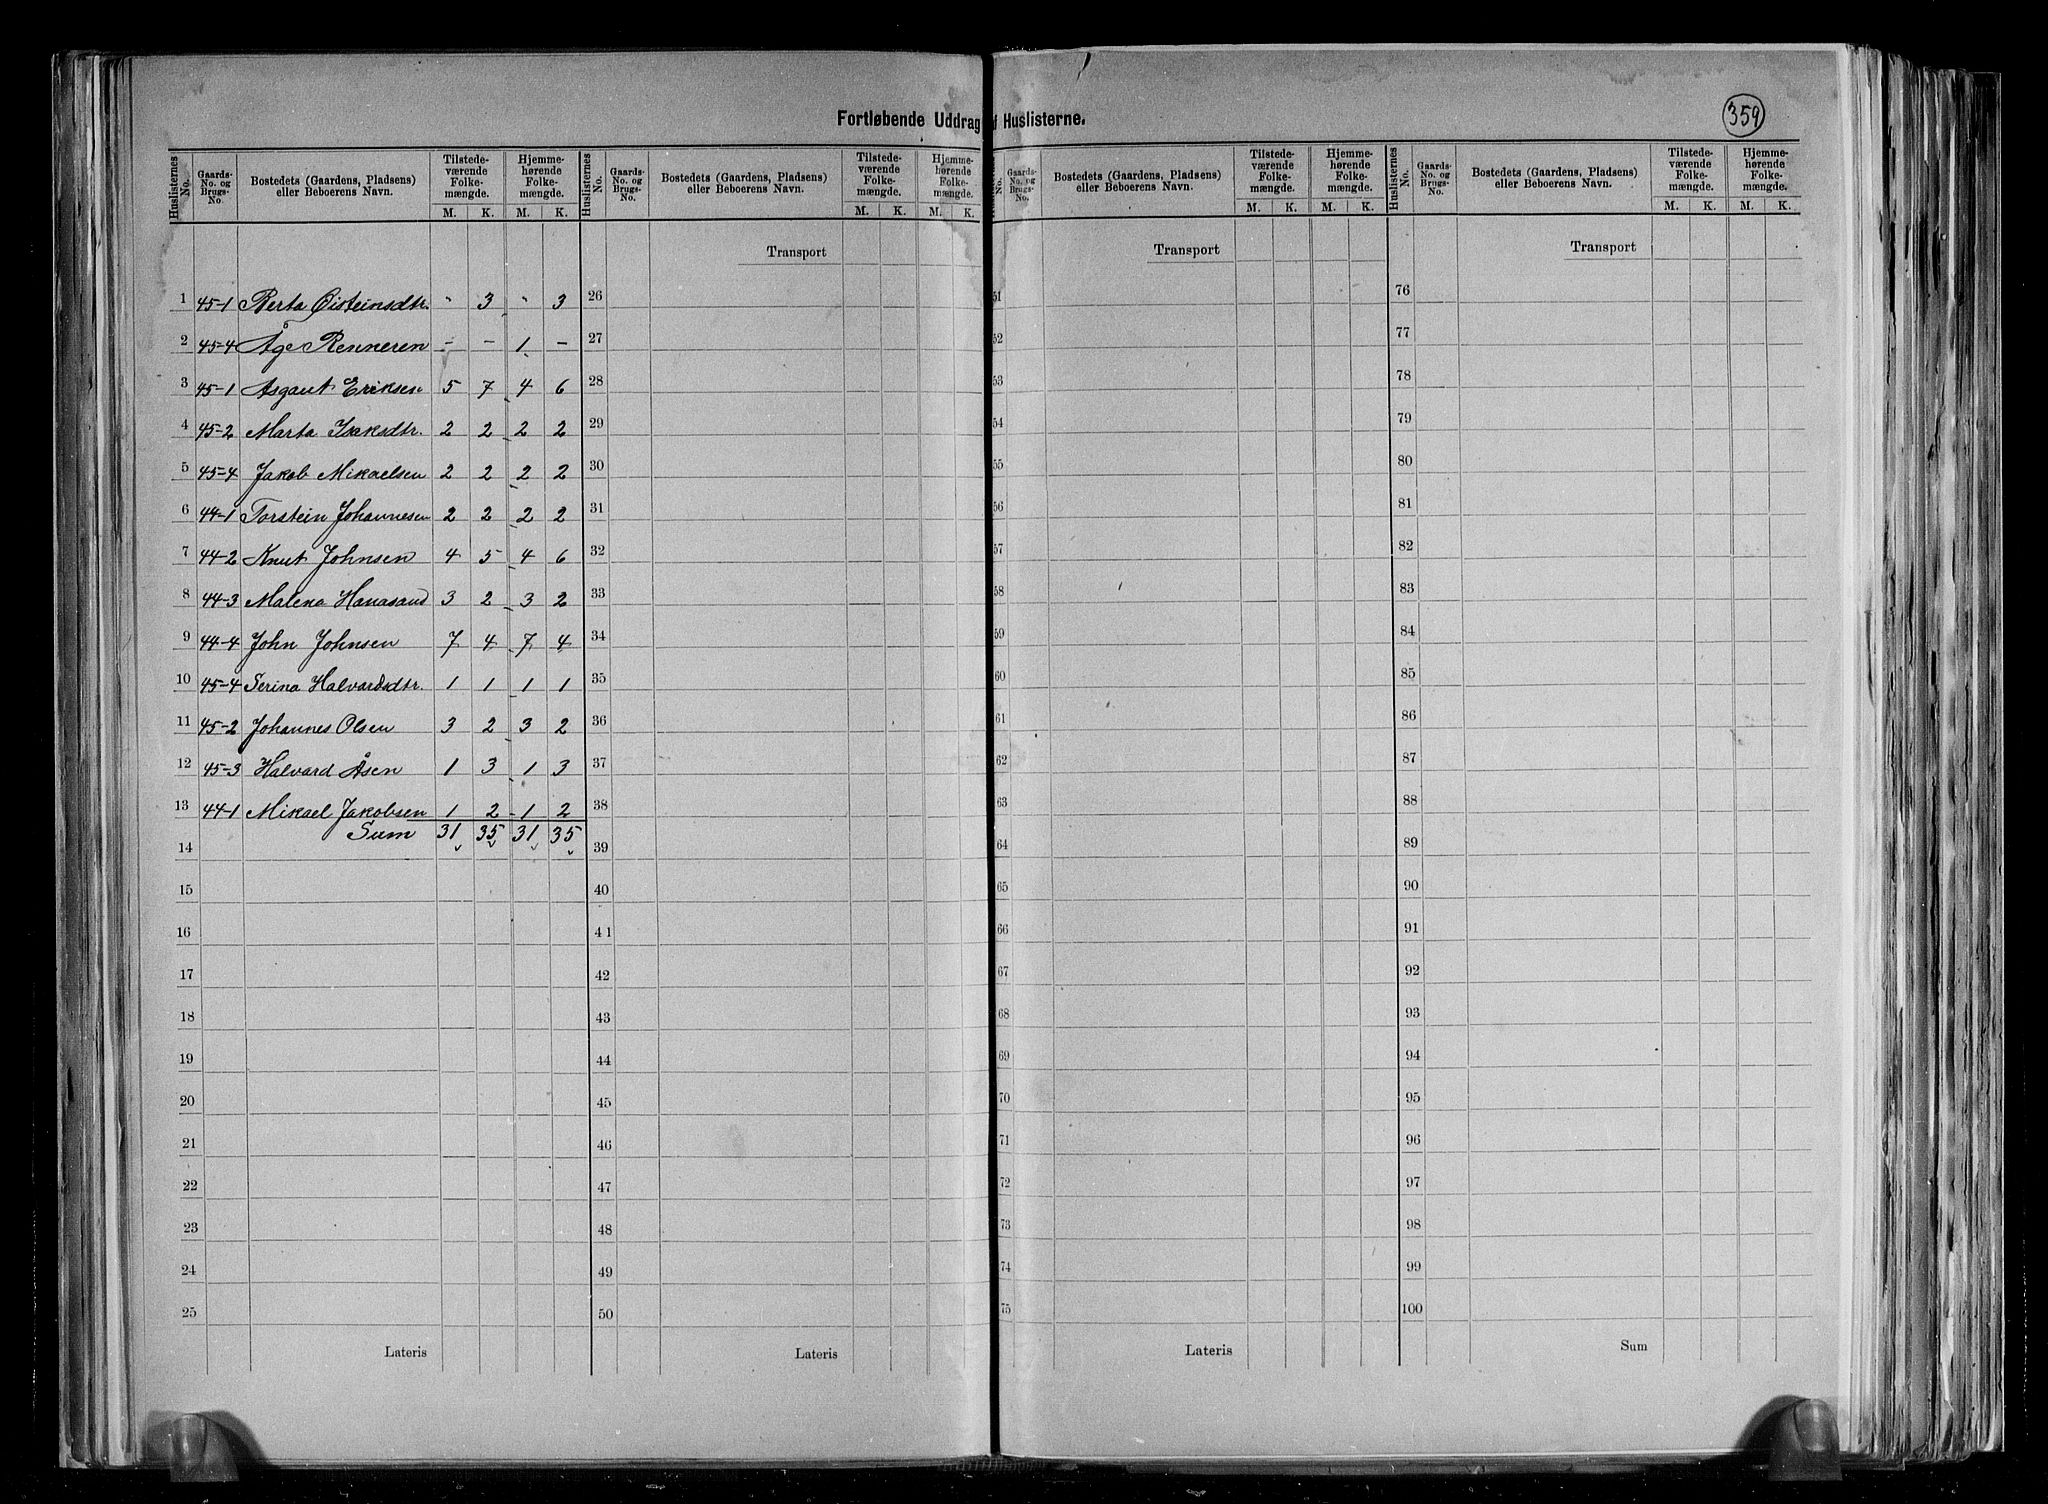 Fortløbende Uddrag af Huslisterne.
359
Huslisternes No. Gaards-No. og Brugs-No. Bostedets (Gaardens, Pladsens) eller Beboerens Navn. Tilstedeværende Folkemængde. M. K. Hjemmehørende Folkemængde. M. K.
Huslisternes No. Gaards-No. og Brugs-No. Bostedets (Gaardens, Pladsens) eller Beboerens Navn. Tilstedeværende Folkemængde. M. K. Hjemmehørende Folkemængde. M. K.
Gaards-No. og Brugs-No. Bostedets (Gaardens, Pladsens) eller Beboerens Navn. Tilstedeværende Folkemængde. M. K. Hjemmehørende Folkemængde. M. K.
Huslisternes No. Gaards-No. og Brugs-No. Bostedets (Gaardens, Pladsens) eller Beboerens Navn. Tilstedeværende Folkemængde. M. K. Hjemmehørende Folkemængde. M. K.
1 45-1 Berta Öisteinsdtr. " 3 " 3
2 45-4 Åge Renneren - - 1 -
3 45-1 Asgaut Eriksen 5 7 4 6
4 45-2 Marta Isaksdtr. 2 2 2 2
5 45-4 Jakob Mikaelsen 2 2 2 2
6 44-1 Torstein Johannesen 2 2 2 2
7 44-2 Knut Johnsen 4 5 4 6
8 44-3 Malena Hanasand 3 2 3 2
9 44-4 John Johnsen 7 4 7 4
10 45-4 Serina Halvardsdtr. 1 1 1 1
11 45-2 Johannes Olsen 3 2 3 2
12 45-3 Halvard Åsen 1 3 1 3
13 44-1 Mikael Jakobsen 1 2 1 2
Sum 31 35 31 35
14
15
16
17
18
19
20
21
22
23
24
25
Lateris
Transport
26
27
28
29
30
31
32
33
34
35
36
37
38
39
40
41
42
43
44
45
46
47
48
49
50
Lateris
Transport
51
52
53
54
55
56
57
58
59
60
61
62
63
64
65
66
67
68
69
70
71
72
73
74
75
Lateris
Transport
76
77
78
79
80
81
82
83
84
85
86
87
88
89
90
91
92
93
94
95
96
97
98
99
100
Sum